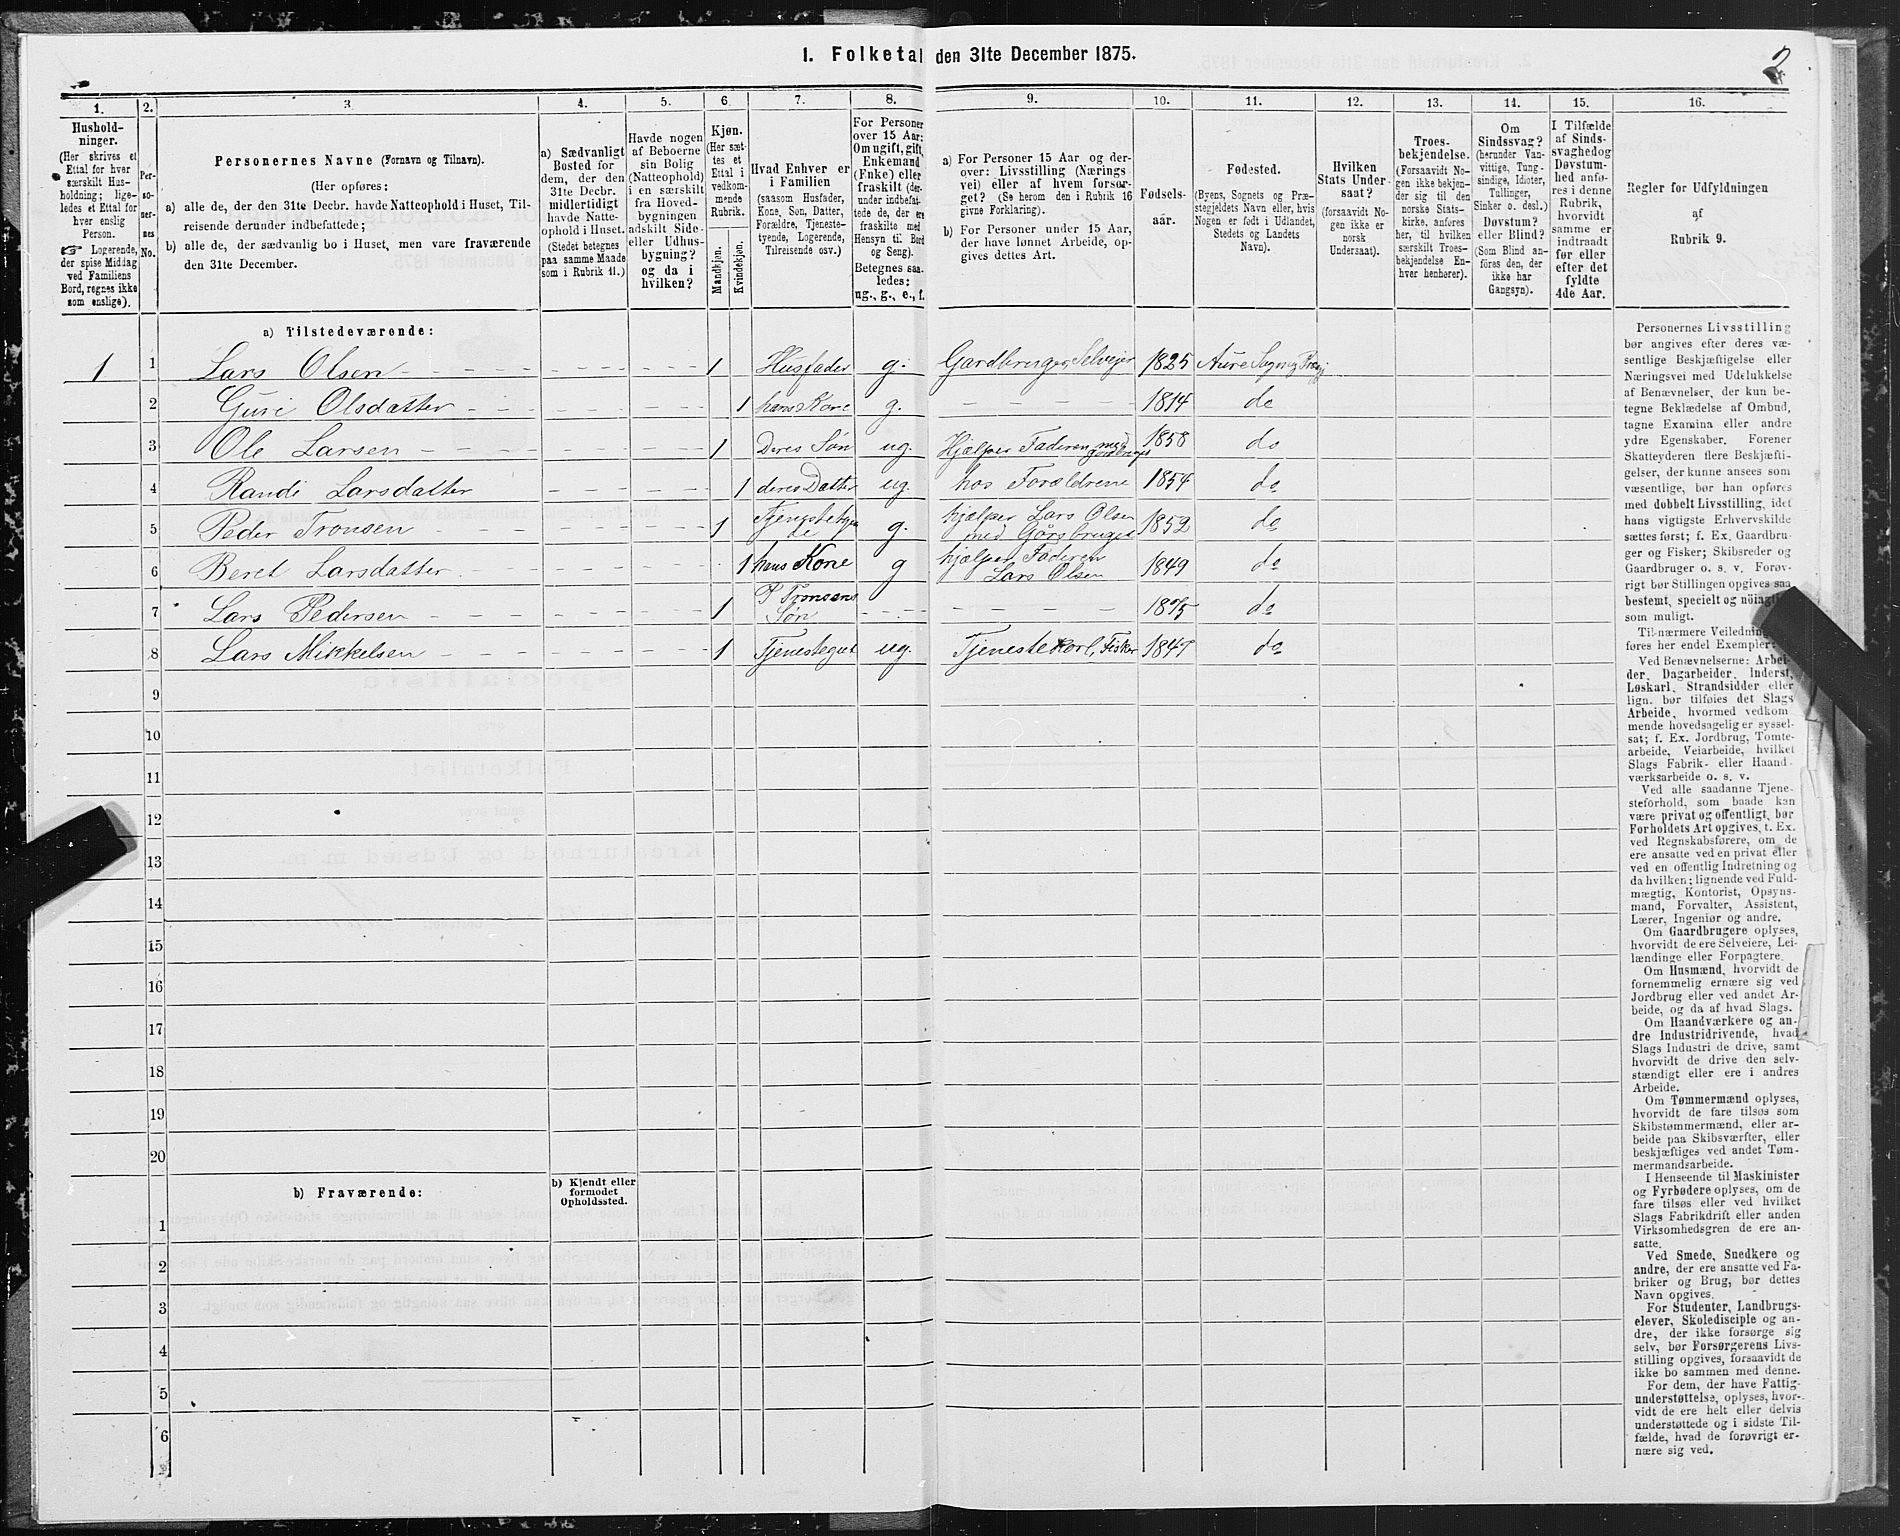 1. Folketal den 31te December 1875.
2
1. 2. 3. 4. 5. 6. 7. 8. 9. 10. 11. 12. 13. 14. 15. 16.
Hushold-
ninger.
(Her skrives et
Ettal for hver
særskilt Hus-
holdning; lige-
ledes et Ettal for
hver enslig
Person.
☞ Logerende,
der spise Middag
ved Familiens
Bord, regnes ikke
som enslige).
Per-
so-
ner-
nes
No.
Personernes Navne (Fornavn og Tilnavn).
(Her opføres:
a) alle de, der den 31te Decbr. havde Natteophold i Huset, Til-
reisende derunder indbefattede;
b) alle de, der sædvanlig bo i Huset, men vare fraværende
den 31te December.
a) Sædvanligt
Bosted for
dem, der den
31te Decbr.
midlertidigt
havde Natte-
ophold i Huset.
(Stedet betegnes
paa samme Maade
som i Rubrik 11.)
Havde nogen
af Beboerne
sin Bolig
(Natteophold)
i en særskilt
fra Hoved-
bygningen
adskilt Side-
eller Udhus-
bygning?
og da i
hvilken?
Kjøn.
(Her sæt-
tes et
Ettal i
vedkom-
mende
Rubrik.
Mandkjøn.
Kvindekjøn.
Hvad Enhver er
i Familien
(saasom Husfader,
Kone, Søn, Datter,
Forældre, Tjeneste-
tyende, Logerende,
Tilreisende osv.)
For Personer
over 15 Aar:
Om ugift, gift,
Enkemand
(Enke) eller
fraskilt (der-
under indbefat-
tede de, der ere
fraskilte med
Hensyn til Bord
og Seng).
Betegnes saa-
ledes:
ug., g., e., f.
a) For Personer 15 Aar og der-
over: Livsstilling (Nærings-
vei) eller af hvem forsør-
get? (Se herom den i Rubrik 16
givne Forklaring).
b) For Personer under 15 Aar,
der have lønnet Arbeide, op-
gives dettes Art.
Fødsels-
aar.
Fødested.
(Byens, Sognets og Præ-
stegjeldets Navn eller, hvis
Nogen er født i Udlandet,
Stedets og Landets
Navn).
Hvilken
Stats Under-
saat?
(forsaavidt No-
gen ikke er
norsk
Undersaat).
Troes-
bekjendelse.
(Forsaavidt No-
gen ikke bekjen-
der sig til den
norske Stats-
kirke, anføres
her, til hvilken
særskilt Troes-
bekjendelse En-
hver henhører).
Om
Sindssvag?
(herunder Van-
vittige, Tung-
sindige, Idioter,
Tullinger,
Sinker o. desl.)
Døvstum?
eller Blind?
(Som Blind an-
føres den, der
ikke har
Gangsyn).
I Tilfælde
af Sinds-
svaghed og
Døvstum-
hed anfø-
res i denne
Rubrik,
hvorvidt
samme er
indtraadt
før eller
efter det
fyldte
4de Aar.
Regler for Udfyldningen
af
Rubrik 9.
a) Tilstedeværende:
1 1 Lars Olsen 1 Husfader g. Gardbruger, Selvejer 1825 Aure Sogn og Præstgj
2 Guri Olsdatter 1 hans Kone g. 1814 do
3 Ole Larsen 1 Deres Søn ug. Hjælper Faderen med gardbruget 1858 do
4 Randi Larsdatter 1 deres Datter ug. hos Forældrene 1854 do
5 Peder Tronsen 1 Tjenestetyende g. hjælper Lars Olsen med Görsbruget 1852 do
6 Beret Larsdatter 1 hans Kone g hjælper Faderen Lars Olsen 1849 do
7 Lars Pedersen 1 P Tronsens Søn 1875 do
8 Lars Mikkelsen 1 Tjenestegut ug. Tjenestekarl, Fisker 1847 do
9
10
11
12
13
14
15
16
17
18
19
20
b) Fraværende:
b) Kjendt eller
formodet
Opholdssted.
1
2
3
4
5
6
Personernes Livsstilling
bør angives efter deres væ-
sentlige Beskjæftigelse eller
Næringsvei med Udelukkelse
af Benævnelser, der kun be-
tegne Beklædelse af Ombud,
tagne Examina eller andre
ydre Egenskaber. Forener
Skatteyderen flere Beskjæfti-
gelser, der kunne ansees som
væsentlige, bør han opføres
med dobbelt Livsstilling, idet
hans vigtigste Erhvervskilde
sættes først; f. Ex. Gaardbru-
ger og Fisker; Skibsreder og
Gaardbruger o. s. v. Forøv-
rigt bør Stillingen opgives saa
bestemt, specielt og nöiagtigt
som muligt.
Til nærmere Veiledning
føres her endel Exempler:
Ved Benævnelserne: Arbei-
der, Dagarbeider, Inderst,
Løskarl, Strandsidder eller
lign. bør tilføies det Slags
Arbeide, hvormed vedkom-
mende hovedsagelig er syssel-
sat; f. Ex. Jordbrug, Tomte-
arbeide, Veiarbeide, hvilket
Slags Fabrik- eller Haand-
værksarbeide o. s. v.
Ved alle saadanne Tjene-
steforhold, som baade kan
være privat og offentligt, bør
Forholdets Art opgives, t. Ex.
ved Regnskabsførere, om de
ere ansatte ved en privat eller
ved en offentlig Indretning og
da hvilken; lignende ved Fuld-
mægtig, Kontorist, Opsyns-
mand, Forvalter, Assistent,
Lærer, Ingeniør og andre.
Om Gaardbrugere oplyses,
hvorvidt de ere Selveiere, Lei-
lændinge eller Forpagtere.
Om Husmænd, hvorvidt de
fornemmelig ernære sig ved
Jordbrug eller ved andet Ar-
beide, og da af hvad Slags.
Om Haandværkere og an-
dre Industridrivende, hvad
Slags Industri de drive, samt
hvorvidt de drive den selv-
stændigt eller ere i andres
Arbeide.
Om Tømmermænd oplyses,
hvorvidt de fare tilsøs som
Skibstømmermænd, eller ar-
beide paa Skibsværfter, eller
beskjæftiges ved andet Tøm-
mermandsarbeide.
I Henseende til Maskinister
og Fyrbødere oplyses, om de
fare tilsøs eller ved hvilket
Slags Fabrikdrift eller anden
Virksomhedsgren de ere an-
satte.
Ved Smede, Snedkere og
andre, der ere ansatte ved Fa-
briker og Brug, bør dettes
Navn opgives.
For Studenter, Landbrugs-
elever, Skoledisciple og an-
dre, der ikke forsørge sig
selv, bør Forsørgerens Livs-
stilling opgives, forsaavidt de
ikke bo sammen med denne.
For dem, der have Fattig-
understøttelse, oplyses, hvor-
vidt de ere helt eller delvis
understøttede og i sidste Til-
fælde, hvad de forøvrigt er-
nære sig ved.